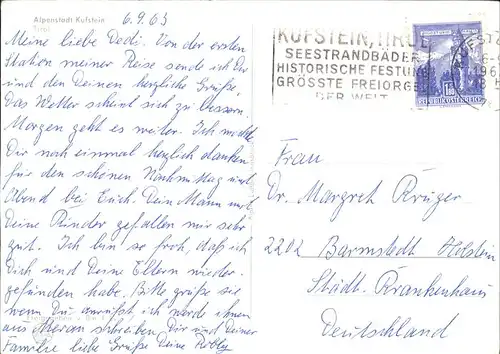 Alpenstadt Kufstein
Tirol
6.9.63
Meine liebe Dedi. Von der ersten
Station meiner Reise sende ich Dir
und den Deinen herzliche Grüße,
Das Wetter scheint sich zu bessern.
Morgen geht es weiter. Ich möchte
Dir noch einmal herzlich danken
für den schönen Nachmittag und
Abend bei Euch. Dein Mann und
Deine Kinder gefallen mir sehr
gut. Ich bin so froh, daß ich
Dich und Deine Eltern wieder-
gefunden habe. Bitte grüße sie
wenn Du anrufst, ich werde ihnen
aus Meran schreiben Dir und Deiner
Familie liebe Grüße Deine
KUFSTEIN, TIROL
SEESTRANDBÄDER
HISTORISCHE FESTUNG
GRÖSSTE FREIORGEL
DER WELT
REPUBLIK ÖSTERREICH
Frau
Dr. Margret Krüger
2202 Barmstedt Holstein
Städt. Krankenhaus
Deutschland